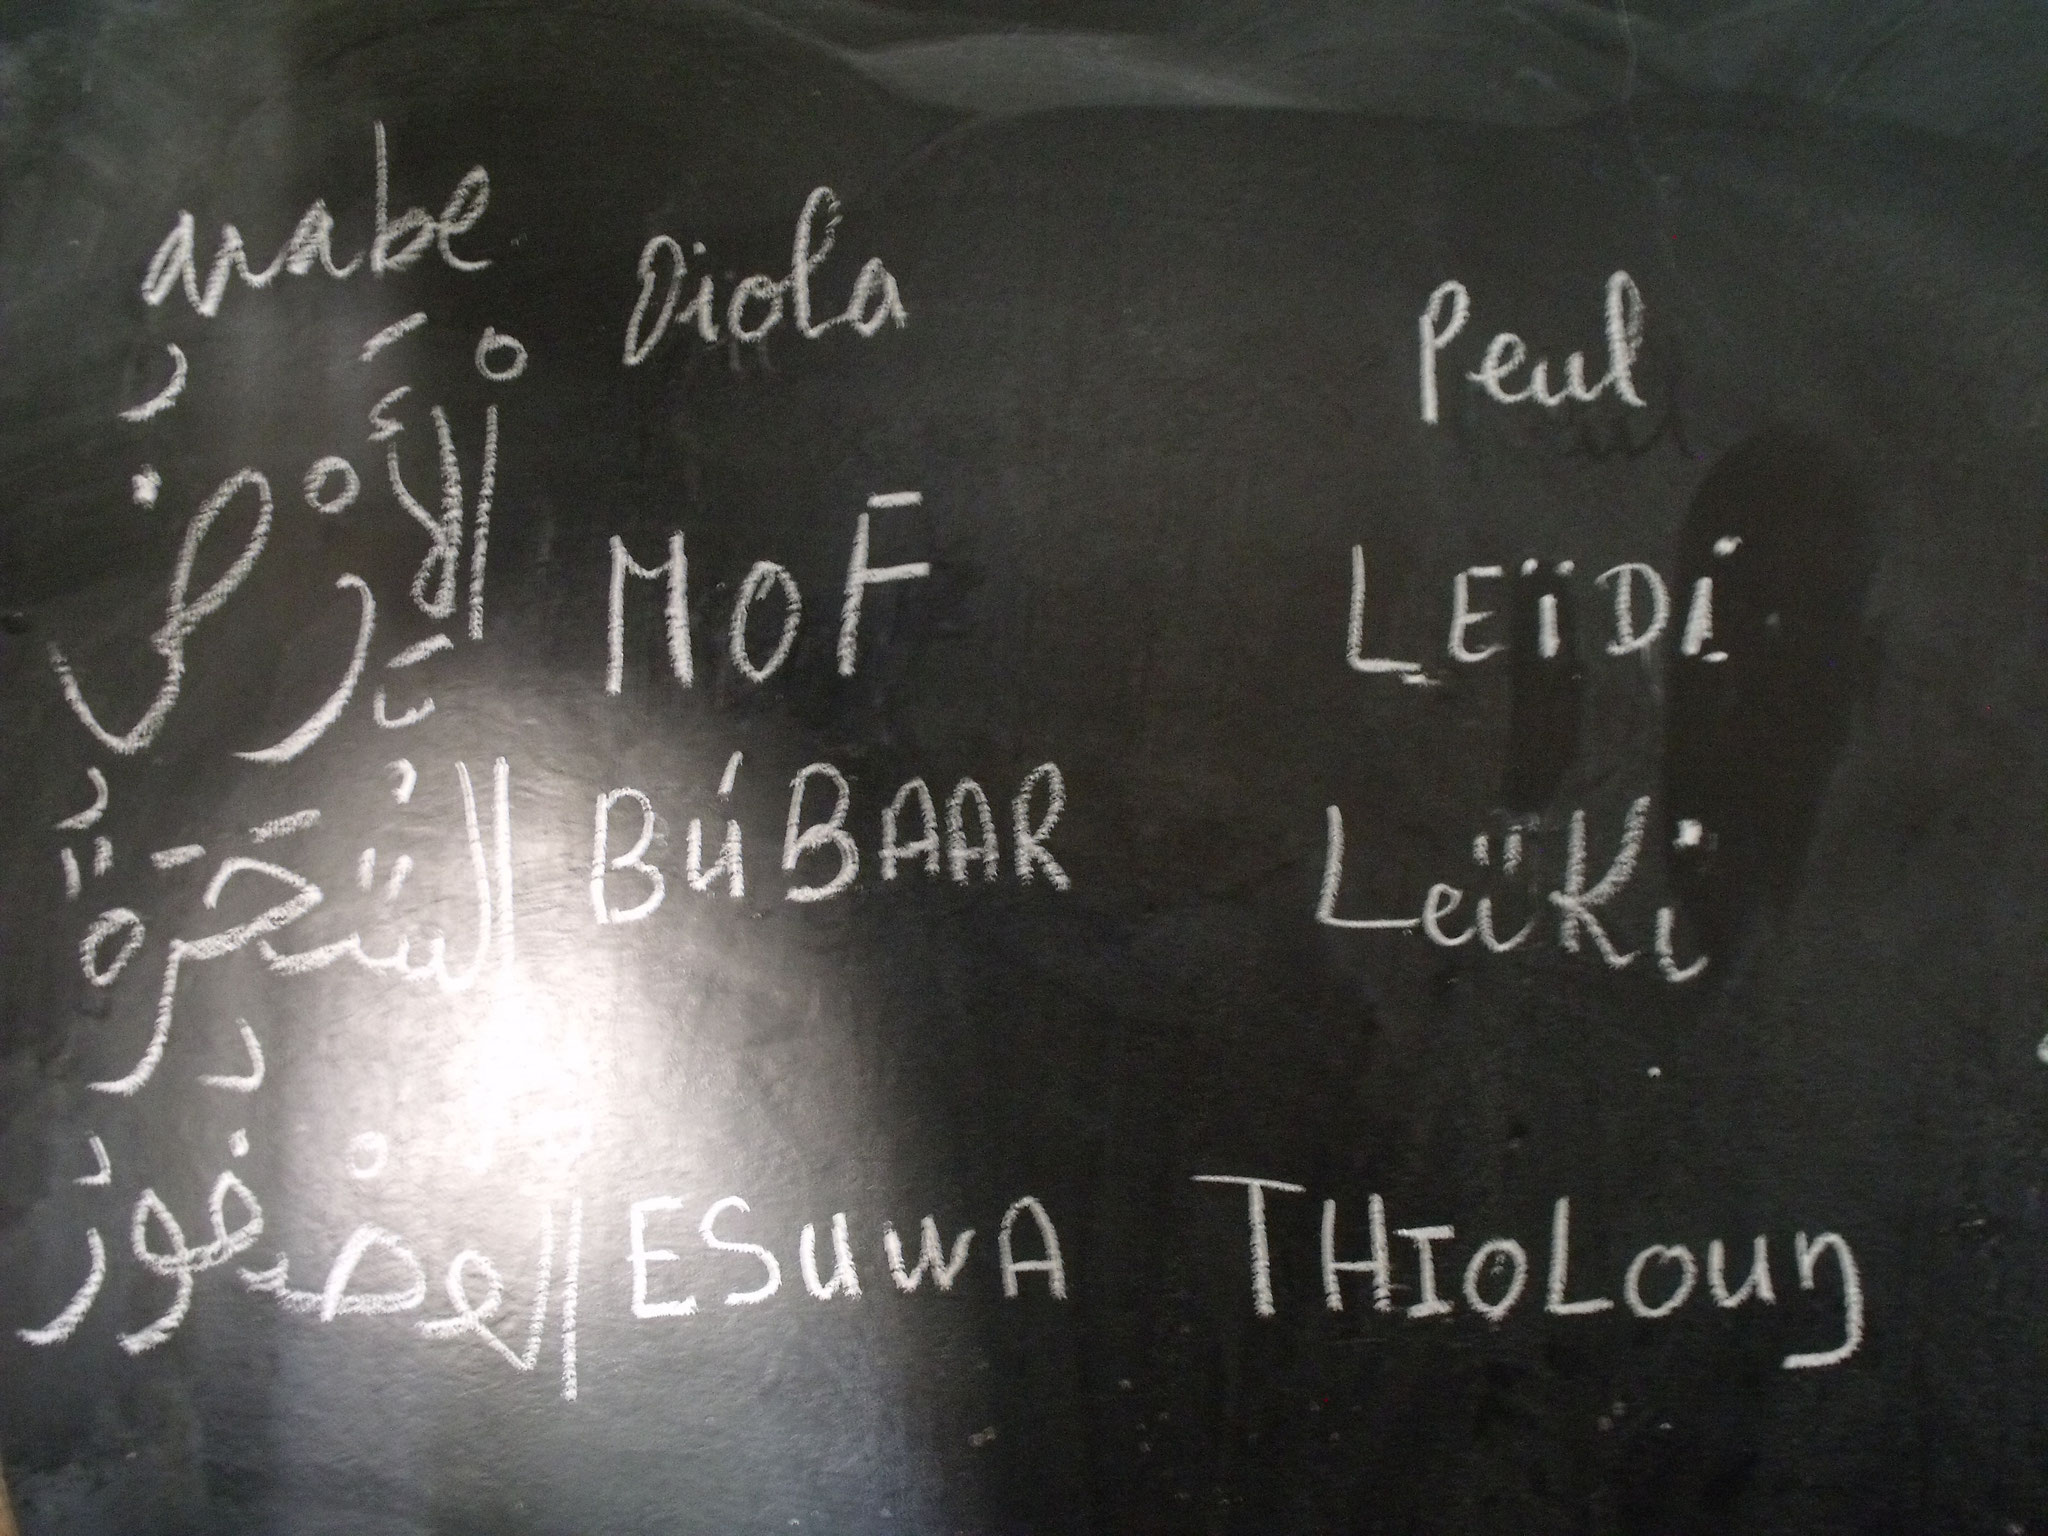 arabe Diola Peul
الْأَرْضُ MOF LEÏDI
الشَّجَرَةُ BÚBAAR LeïKi
الْعُصْفُورُ ESUWA THIOLOUŊ